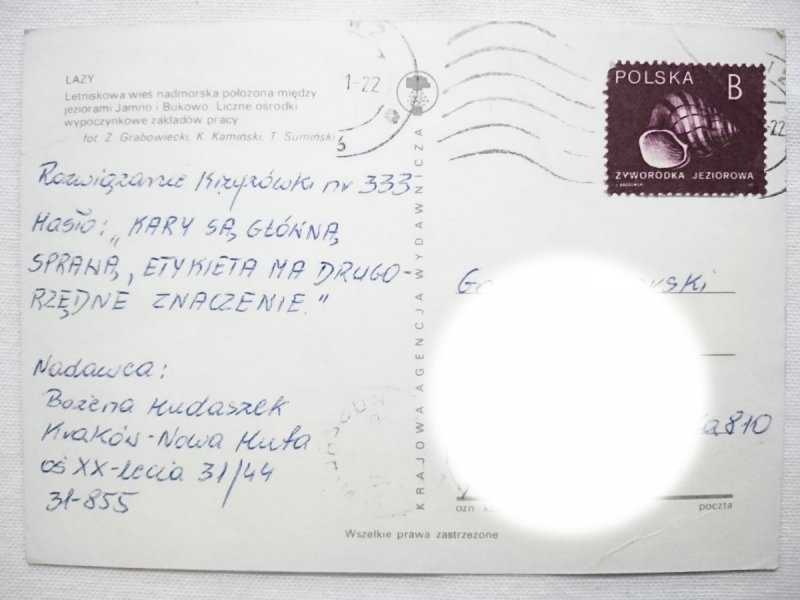 ŁAZY
Letniskowa wieś nadmorska położona między
jeziorami Jamno i Bukowo. Liczne ośrodki
wypoczynkowe zakładów pracy
fot. Z. Grabowiecki, K. Kamiński, T. Sumiński
Rozwiązanie krzyżówki nr 333
Hasło: „KARY SĄ GŁÓWNĄ
SPRAWĄ, ETYKIETA MA DRUGO-
RZĘDNE ZNACZENIE."
Nadawca:
Bożena Hudaszek
Kraków-Nowa Huta
oś XX-lecia 31/44
31-855
KRAJOWA AGENCJA WYDAWNICZA
1-22
POLSKA B
ŻYWORODKA JEZIOROWA
22
810
poczta
Wszelkie prawa zastrzeżone